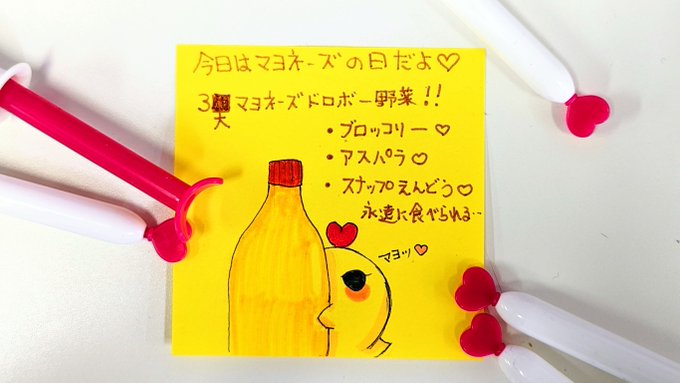 今日はマヨネーズの日だよ♡
3大マヨネーズドロボー野菜!!
・ブロッコリー♡
・アスパラ♡
・スナップえんどう♡
永遠に食べられる…
マヨッ♡